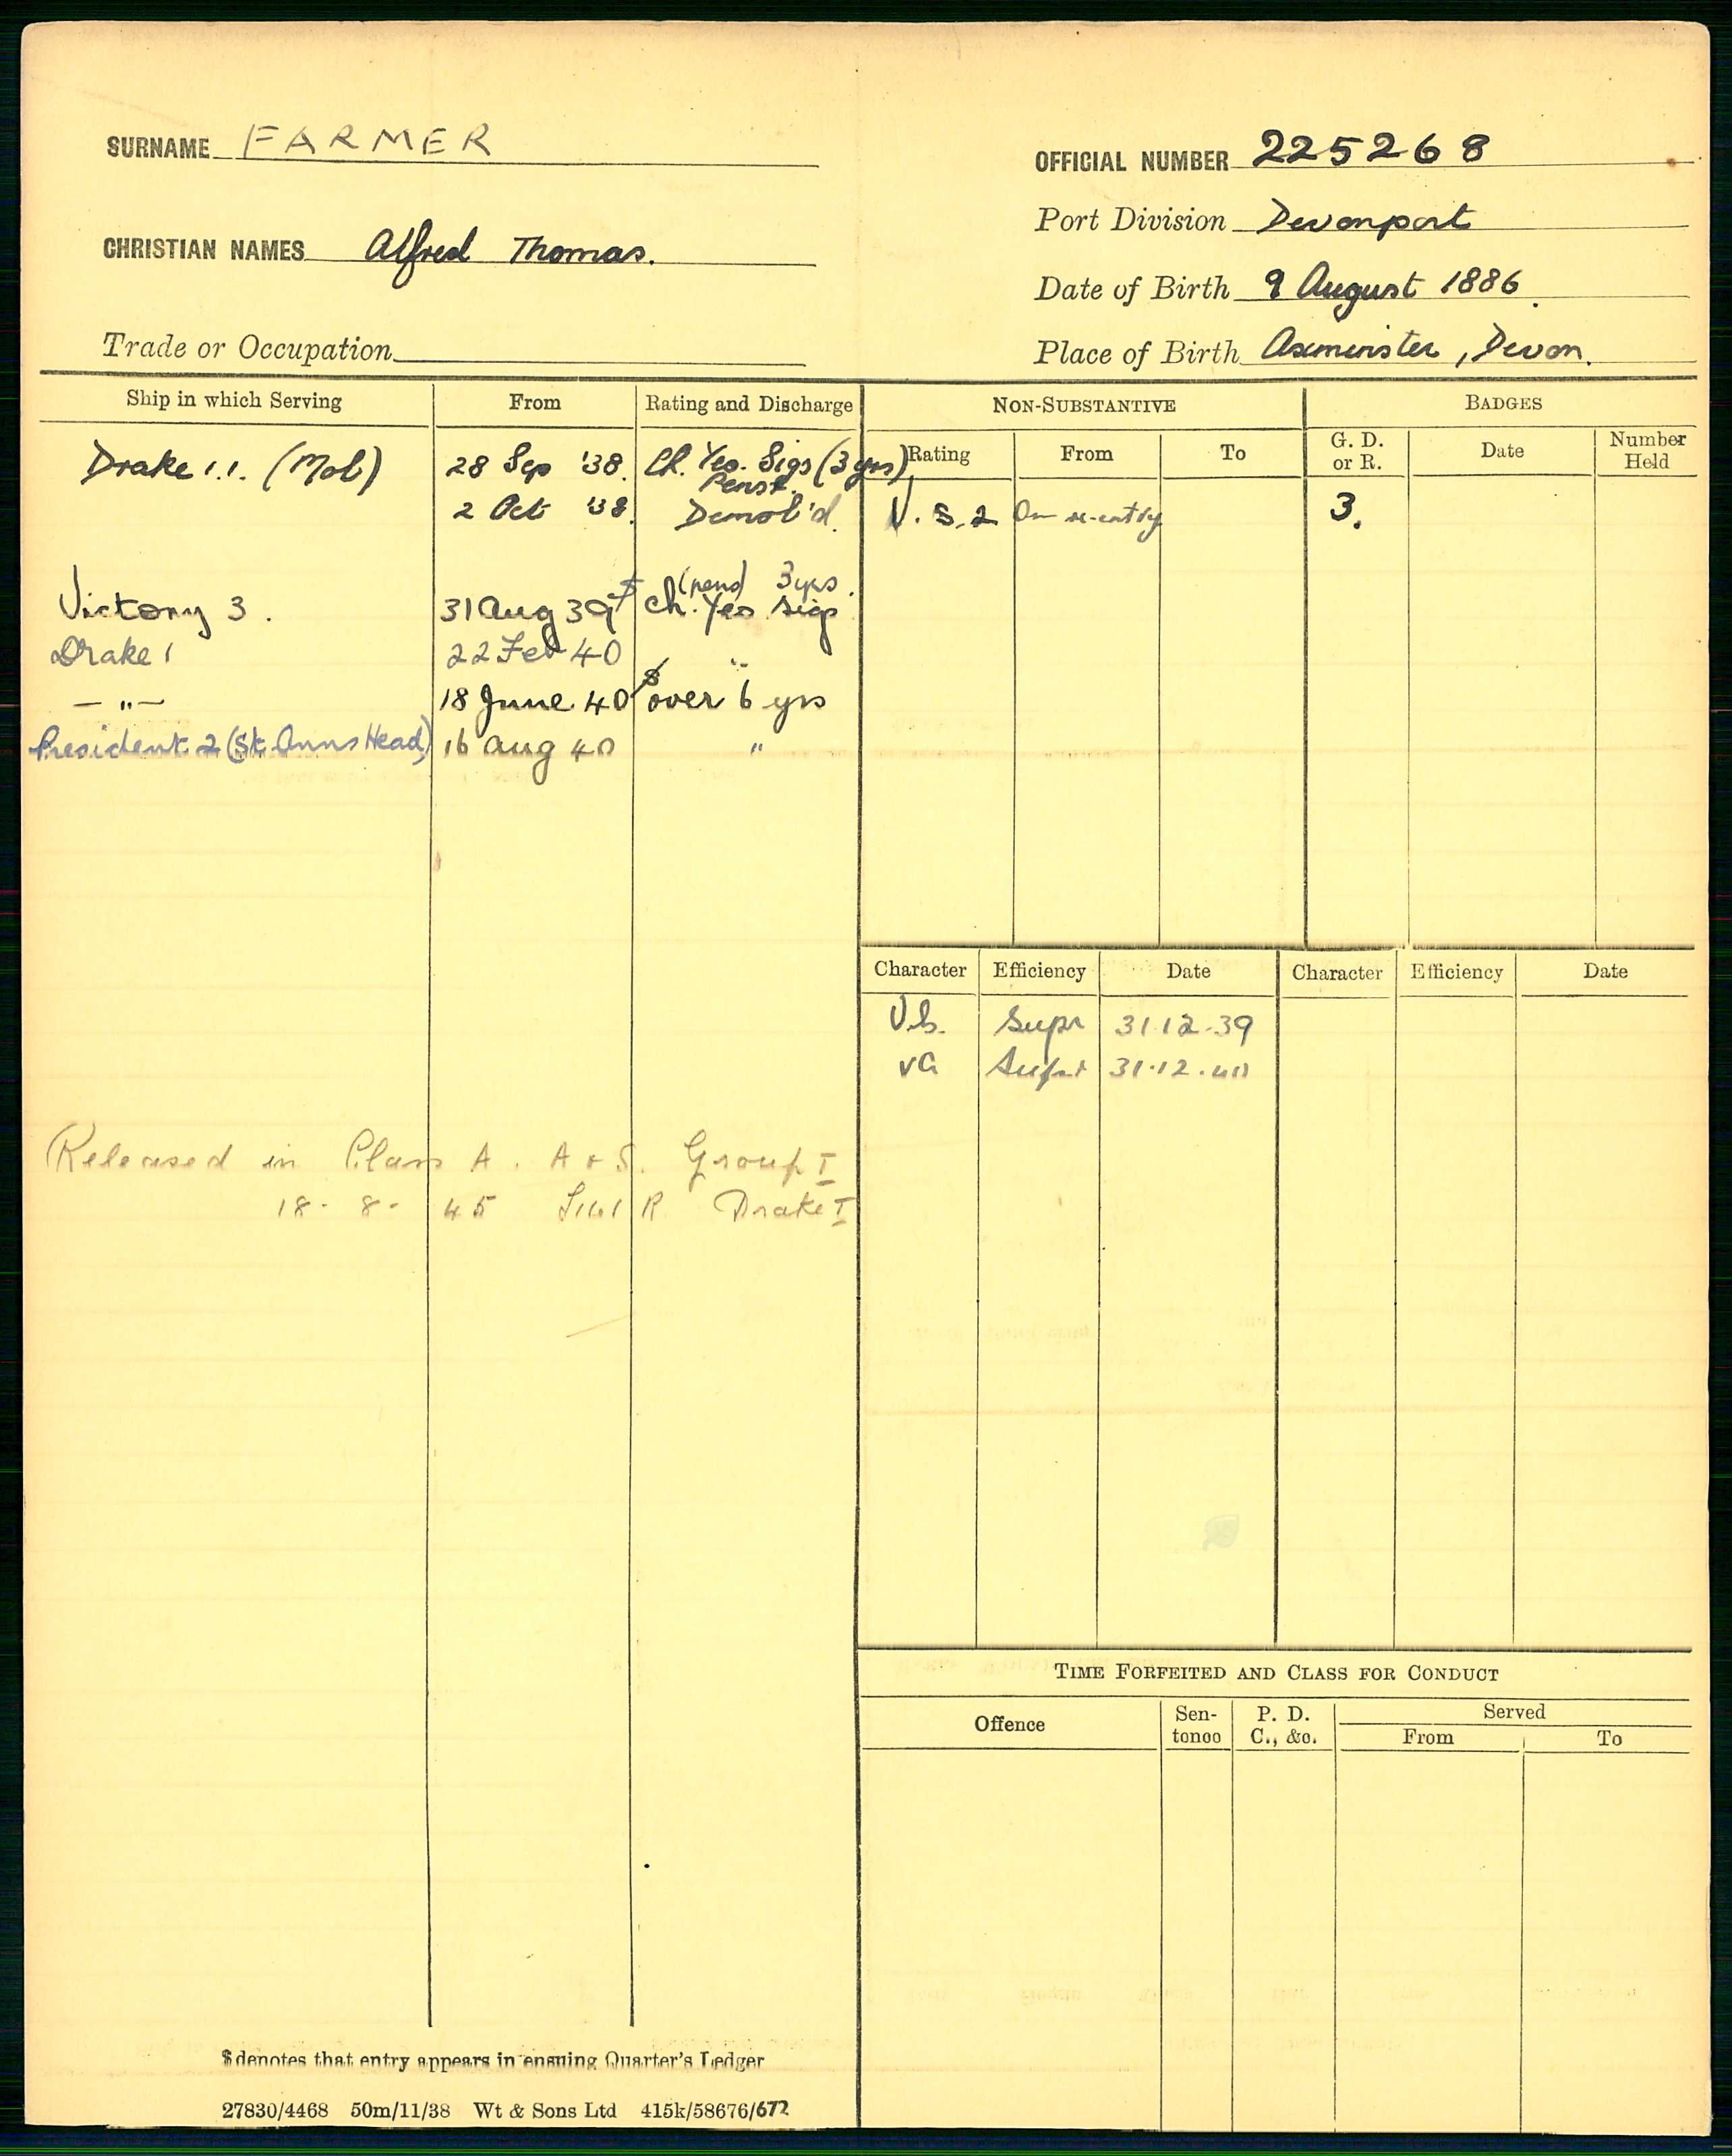 SURNAME FARMER
OFFICIAL NUMBER 225268
Port Division Devonport
CHRISTIAN NAMES Alfred Thomas.
Date of Birth 9 August 1886.
Trade or Occupation
Place of Birth Axminster, Devon.
Ship in which Serving From Rating and Discharge
NON-SUBSTANTIVE
BADGES
Rating From To
G. D. or R. Date Number Held
Drake 1.1. (Mob) 28 Sep '38. Ch. Yeo. Sigs (3 yrs)
Penst.
2 Oct '38. Demob'd.
V. S. 2 On re-entry
3.
(pens) 3 yrs.
Victory 3. 31 Aug 39 $ Ch. Yeo Sigs
Drake 1 22 Feb 40 "
— " — 18 June 40 $ over 6 yrs
President 2 (St. Anns Head) 16 Aug 40 "
Character Efficiency Date Character Efficiency Date
V.G. Supr 31.12.39
VG Supr 31.12.40
Released in Class A. A & S. Group I
18-8-45 R Drake I
TIME FORFEITED AND CLASS FOR CONDUCT
Offence
Sentence
P. D. C., &c.
Served
From To
$ denotes that entry appears in ensuing Quarter's Ledger
27830/4468 50m/11/38 Wt & Sons Ltd 415k/58676/672